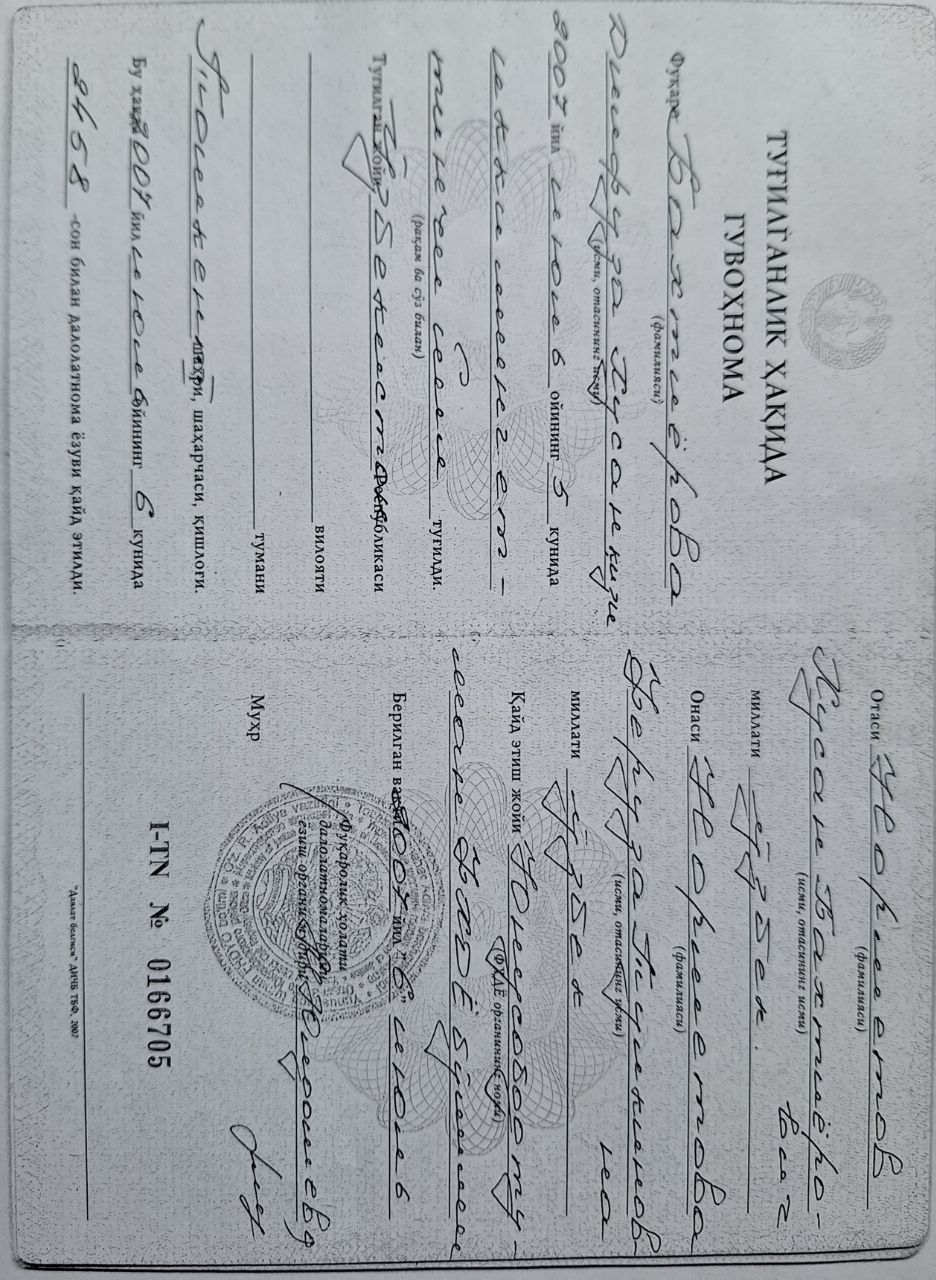 ТУҒИЛГАНЛИК ҲАҚИДА
ГУВОҲНОМА
Фуқаро Бахтиёрова
(фамилияси)
Дилфуза Хусан кизи
(исми, отасининг исми)
2007 йил июль ойининг 5 кунида
икки минг ет-
тинчи йили туғилди.
(рақам ва сўз билан)
Туғилган жойи, Ўзбекистон Республикаси
вилояти
тумани
Тошкент шаҳри, шаҳарчаси, қишлоғи.
Бу ҳақда 2007 йил июль ойининг 6 кунида
2458 -сон билан далолатнома ёзуви қайд этилди.
Отаси
(фамилияси)
Хусан Бахтиёро-
вич
(исми, отасининг исми)
миллати ўзбек
Онаси
(фамилияси)
(исми, отасининг исми)
миллати ўзбек
Қайд этиш жойи Юнусобод ту-
(ФҲДЁ органининг номи)
мани ФХДЁ бўлими
Берилган вақти 2007 йил "6" июль
Фуқаролик ҳолати
далолатномаларини
ёзиш органи мудири
Муҳр
I-TN № 0166705
"Давлат белгиси" ДИЧБ ТБФ. 2007